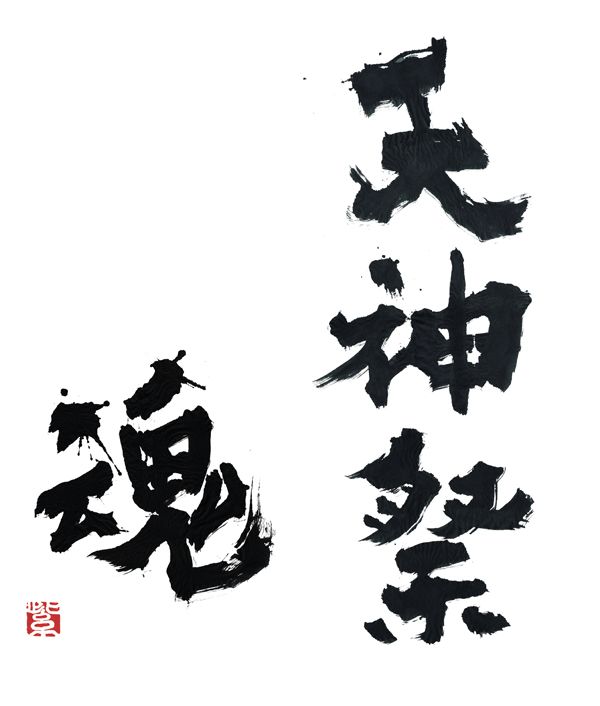 天神祭
魂